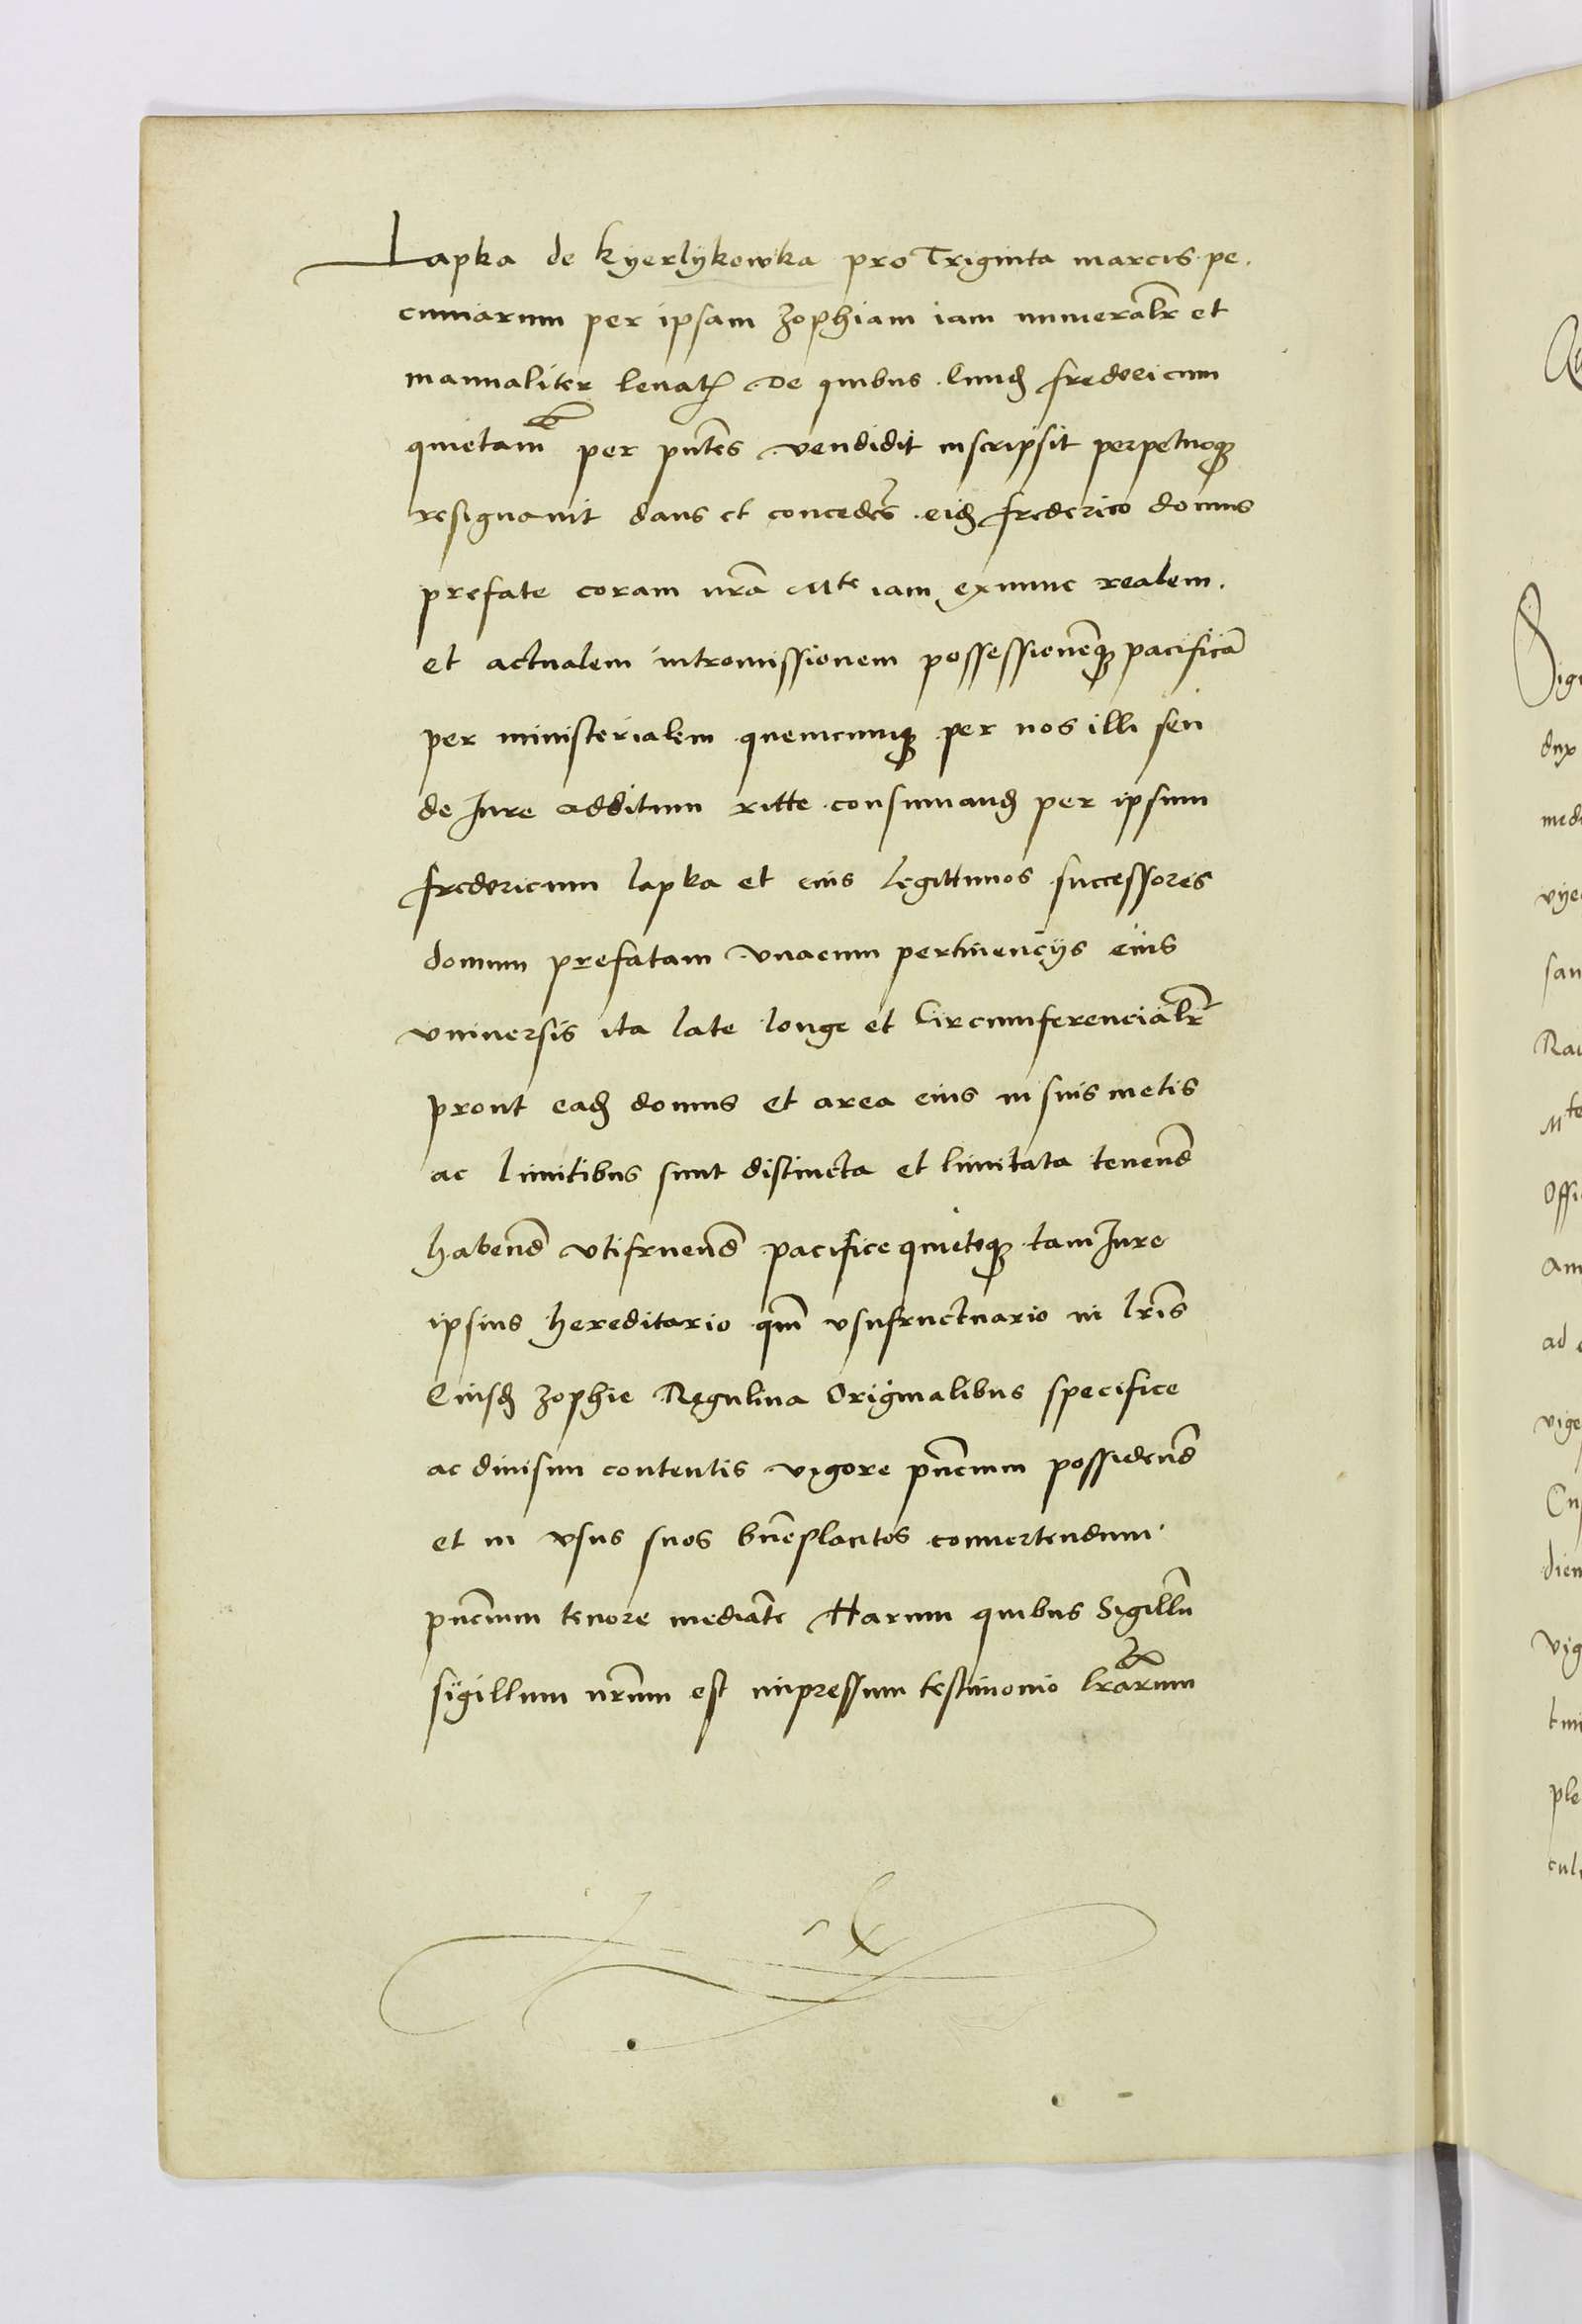 Lapka de kyerlykowka pro Triginta marcis pe.
cuniarum per ipsam zophiam iam numeralr et
manualiter leuat De quibus Eund fredericum
quietam per pntes vendidit inscripsit perpetuoq
resignauit dans et concedes eid frederico domus
prefate coram nra Mte iam exnunc realem.
et actualem intromissionem possessioneq pacifica
per ministerialem quemcumq per nos illi seu
de Iure additum ritte consumand per ipsum
fredericum lapka et eius legittimos successores
domum prefatam vnacum pertinencijs eius
vniuersis ita late longe et Circumferencialr
prout ead domus et area eius in suis metis
ac limitibus sunt distincta et limitata tenend
habend vtifruend pacifice quieteq tam Iure
ipsius hereditario qm vsufructuario in lris
Eiusd zophie Regulina Originalibus specifice
ac diuisim contentis vigore pncium possidend
et in vsus suos bneplacitos conuertendum
pncium tenore mediate Harum quibus Sigillu
sigillum nrum est impressum testimonio lrarum
Sig
dux
med
vye
san
Rad
Mte
Offi
am
ad
vige
dien
vig
ple
cul